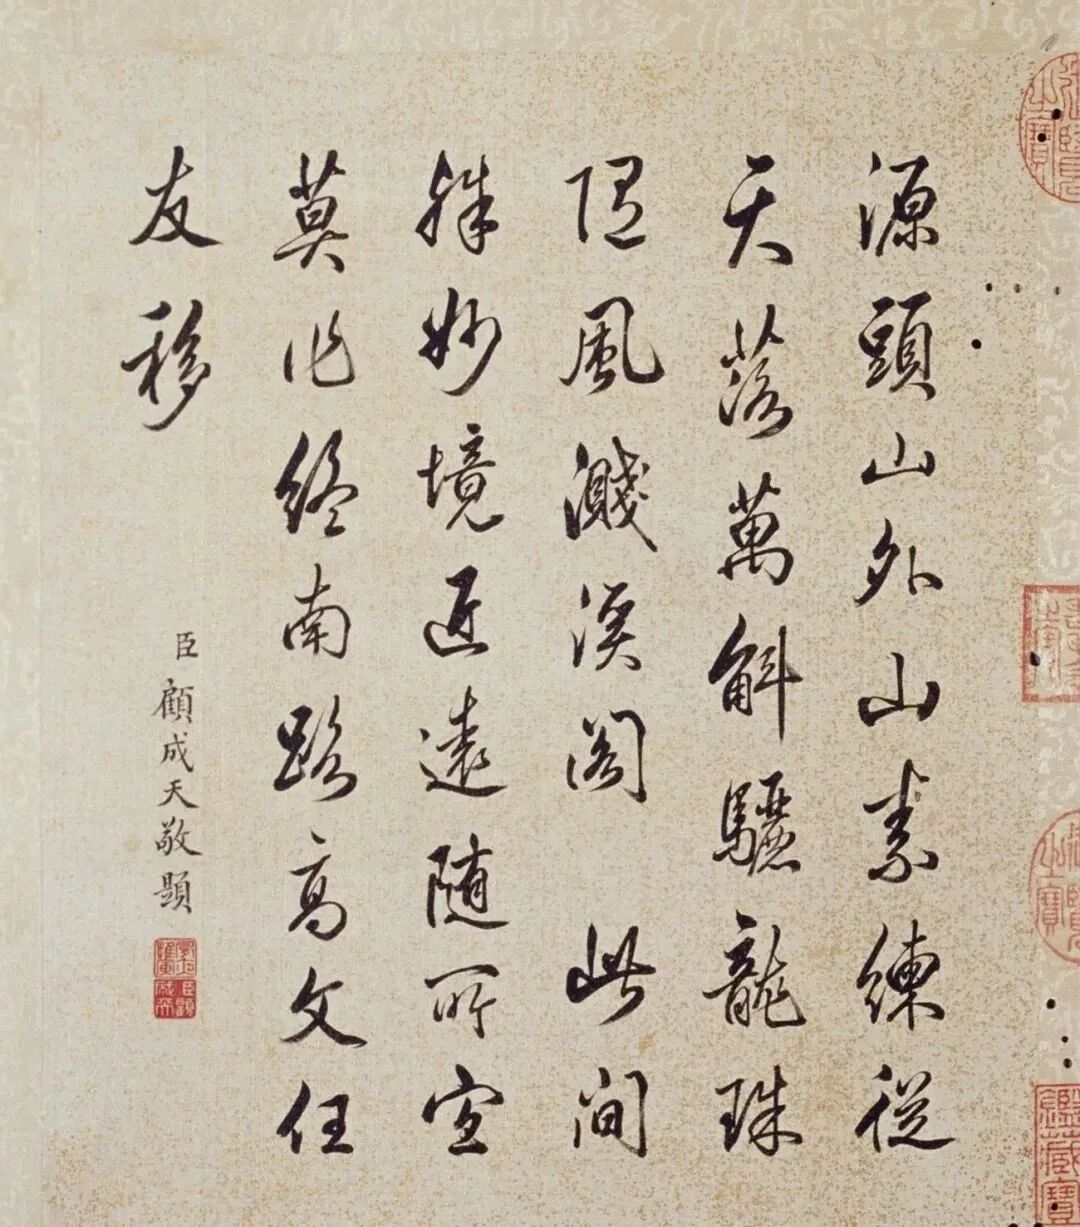 源頭山外山素練從
天落萬斛驪龍珠
随風濺溪閣 此間
殊妙境近遠随所宜
莫作終南路高文任
友移
臣顧成天敬題